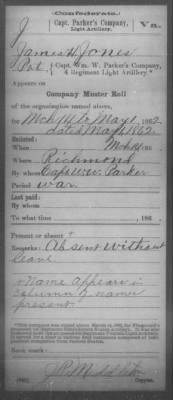 (Confederate.)
J Capt. Parker's Company,
Light Artillery.
James H. Jones
Pvt. Capt. Wm. W. Parker's Company,
4 Regiment Light Artillery.*
Appears on
Company Muster Roll
of the organization named above,
for Mch 14 to May 1, 1862.
dated May 1, 1862.
Enlisted:
When Mch 14, 186
Where Richmond
By whom Capt W.W. Parker
Period war.
Last paid:
By whom
To what time , 186 .
Present or absent?
Remarks: Absent without
leave
+ Name appears in
column of names
present.
Book mark:
Copyist.